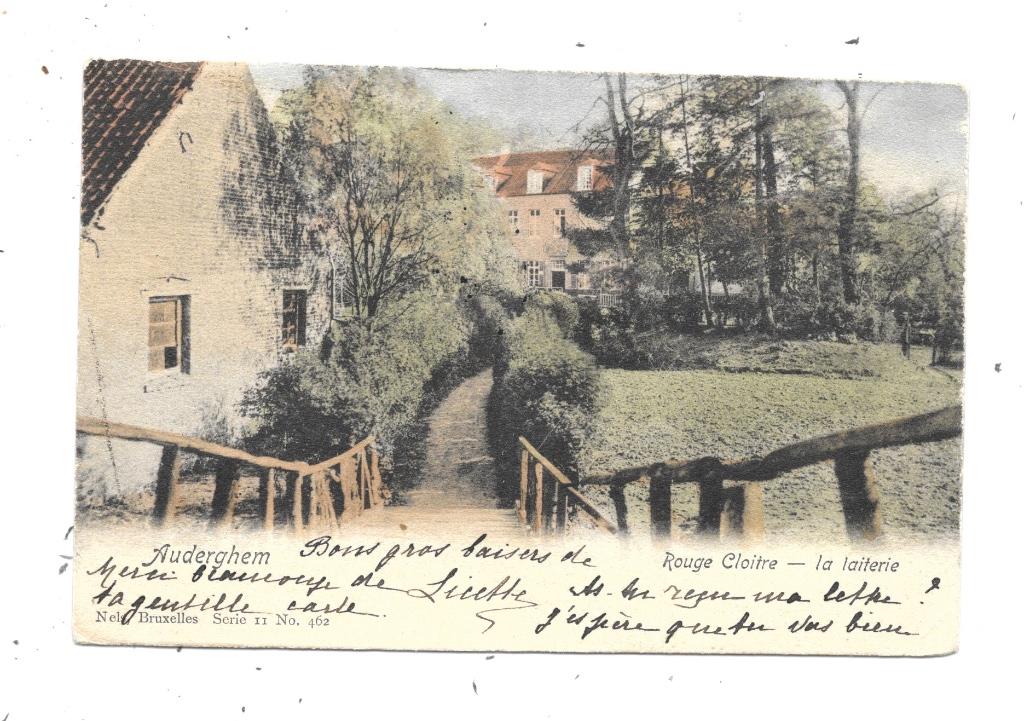 Auderghem
Rouge Cloitre — la laiterie
Bons gros baisers de
Licette
Merci beaucoup de
ta gentille carte.
As-tu reçu ma lettre ?
J'espère que tu vas bien
Nels Bruxelles Serie 11 No. 462